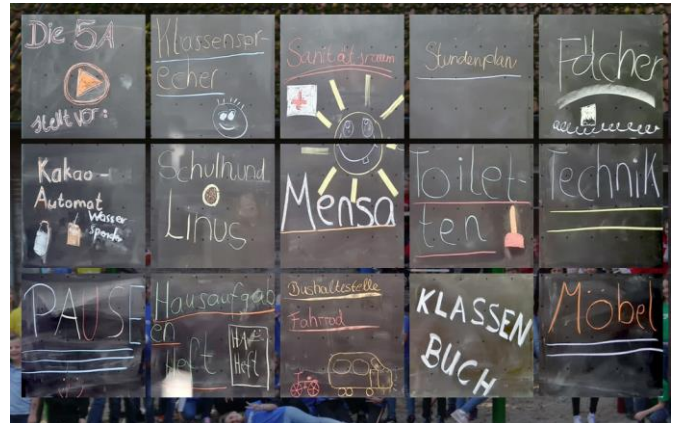 Die 5A
stellt vor:
Klassenspr-
echer
Sanitätsraum
Stundenplan
Fächer
Kakao-
Automat
Wasser
spender
Schulhund
Linus
Mensa
Toilet-
ten
Technik
PAUSE
Hausaufgab
en
Heft
HA
Heft
Bushaltestelle
Fahrrad
KLASSEN
BUCH
Möbel